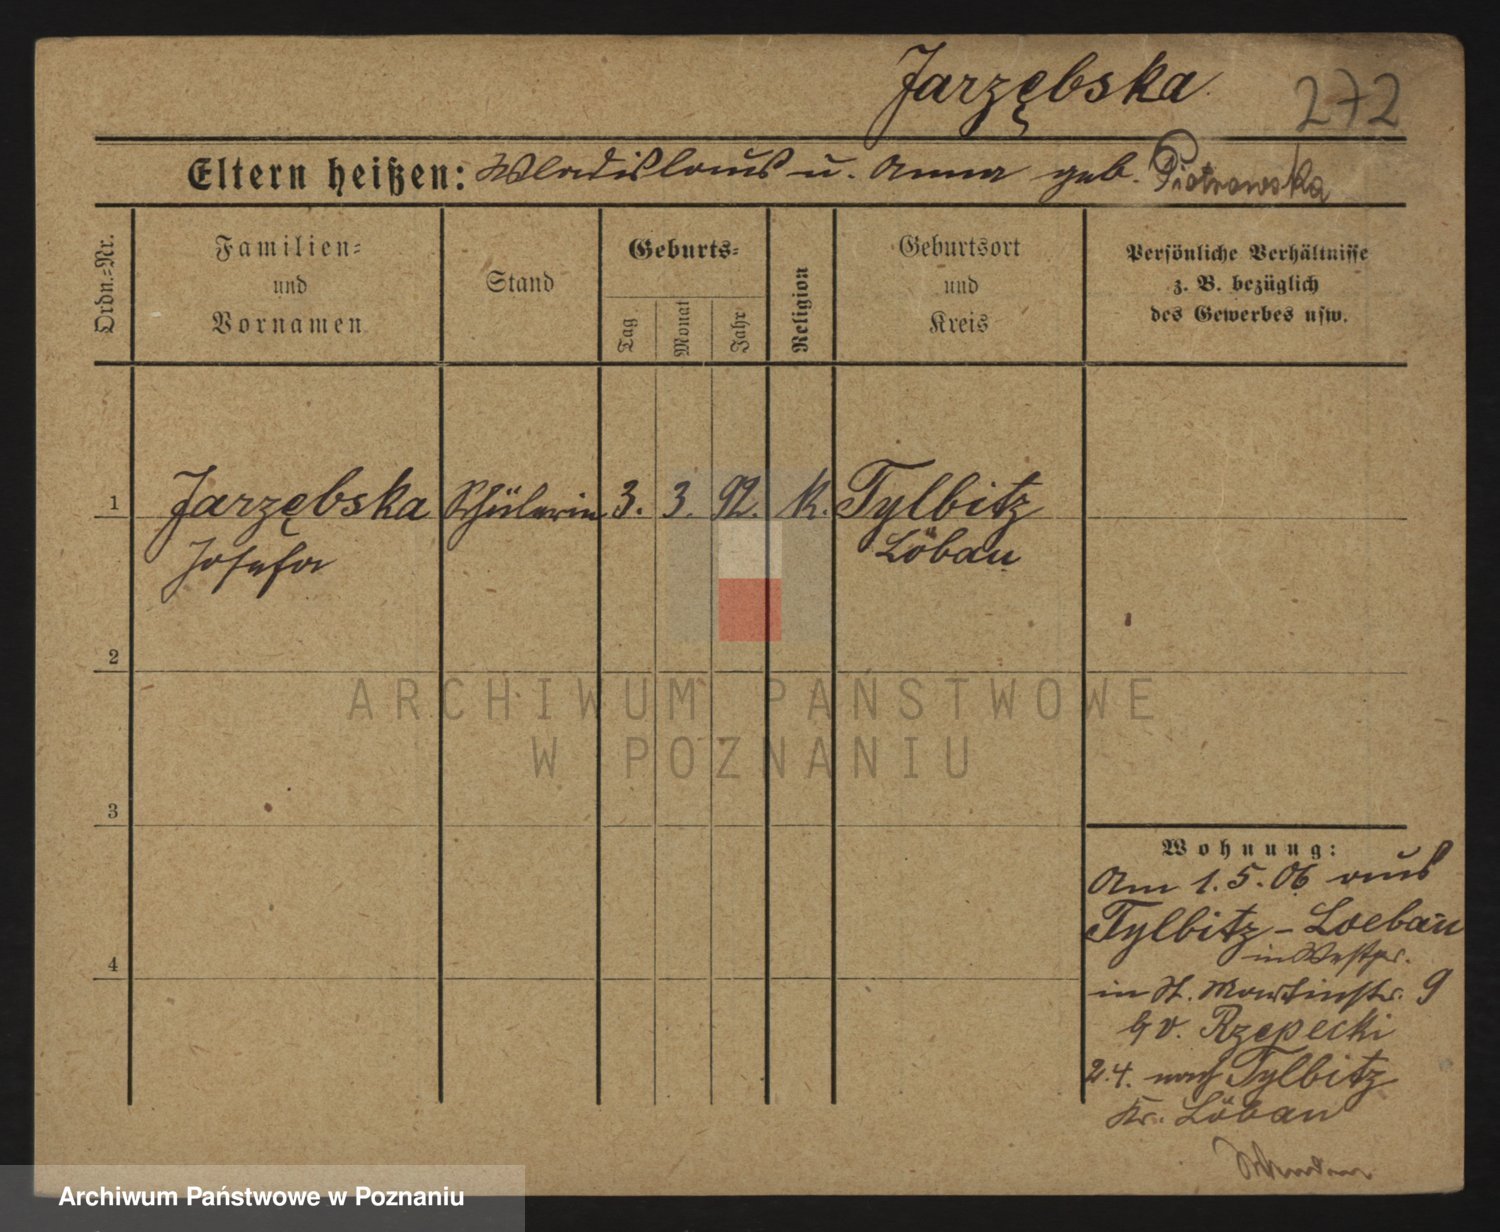 Jarzębska 272
Eltern heißen: Wladislaus u. Anna geb. Piotrowska
Ordn.=Nr.
Familien=
und
Vornamen
Stand
Geburts=
Tag
Monat
Jahr
Religion
Geburtsort
und
Kreis
Persönliche Verhältnisse
z. B. bezüglich
des Gewerbes usw.
1 Jarzębska Schülerin 3. 3. 92. k. Tylbitz
Josefa Löbau
2
ARCHIWUM PAŃSTWOWE
W POZNANIU
3
Wohnung:
Am 1.5.06 aus
Tylbitz - Loebau
in Westpr.
4
in St. Martinstr. 9
b/ v. Rzepecki
2.4. nach Tylbitz
Kr. Löbau
Archiwum Państwowe w Poznaniu